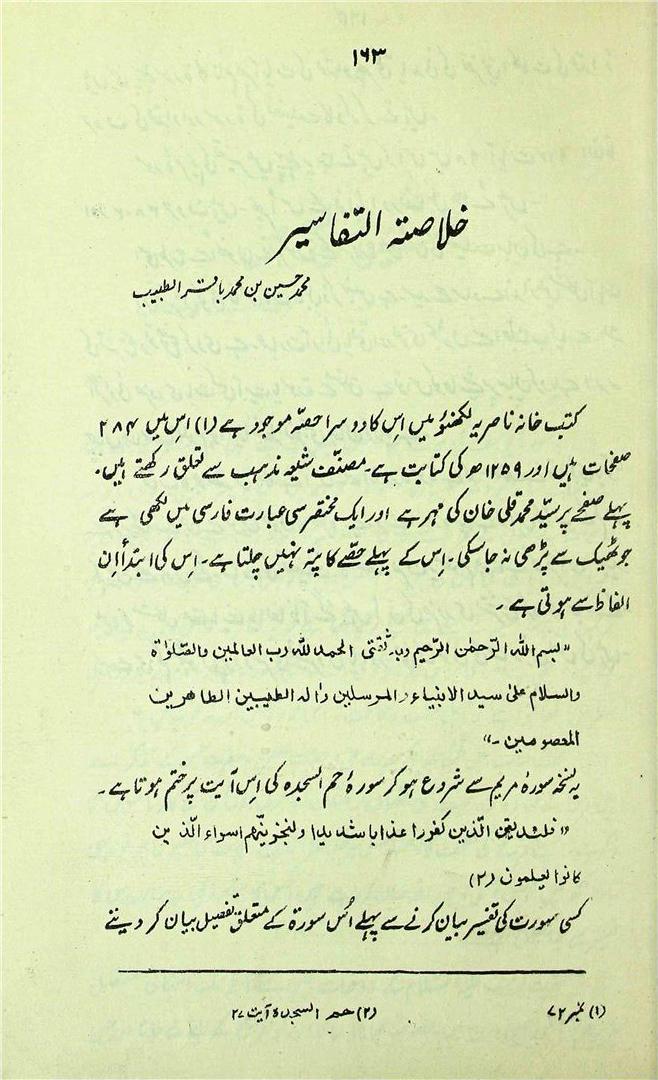 ۱۶۳
خلاصتہ التفاسیر
محمد حسین بن محمد باقر الطبیب
کتب خانہ ناصریہ لکھنؤ میں اس کا دوسرا حصّہ موجود ہے (۱) اس میں ۲۸۴
صفحات ہیں اور ۱۲۵۹ھ کی کتابت ہے۔ مصنّف شیعہ مذہب سے تعلق رکھتے ہیں۔
پہلے صفحے پر سیّد محمد قلی خان کی مہر ہے اور ایک مختصر سی عبارت فارسی میں لکھی ہے
جو ٹھیک سے پڑھی نہ جاسکی۔ اس کے پہلے حصّے کا پتہ نہیں چلتا ہے۔ اس کی ابتدأ ان
الفاظ سے ہوتی ہے۔
"بسم اللہ الرّحمٰن الرّحیم وبہ ثقتی الحمد للہ رب العالمین والصّلوٰۃ
والسلام علیٰ سید الانبیاء والمرسلین واٰلہ الطیبین الطاھرین
المعصومین۔"
یہ نسخہ سورۂ مریم سے شروع ہوکر سورۂ حم السجدہ کی اس آیت پر ختم ہوتا ہے۔
"فلنذیقن الّذین کفروا عذابا شدیدا ولنجزینّھم اسواء الّذین
کانوا یعلمون (۲)
کسی سورت کی تفسیر بیان کرنے سے پہلے اُس سورۃ کے متعلق تفصیل بیان کر دیتے
(۱) نمبر ۷۲ (۲) حم السجدہ آیت ۲۷